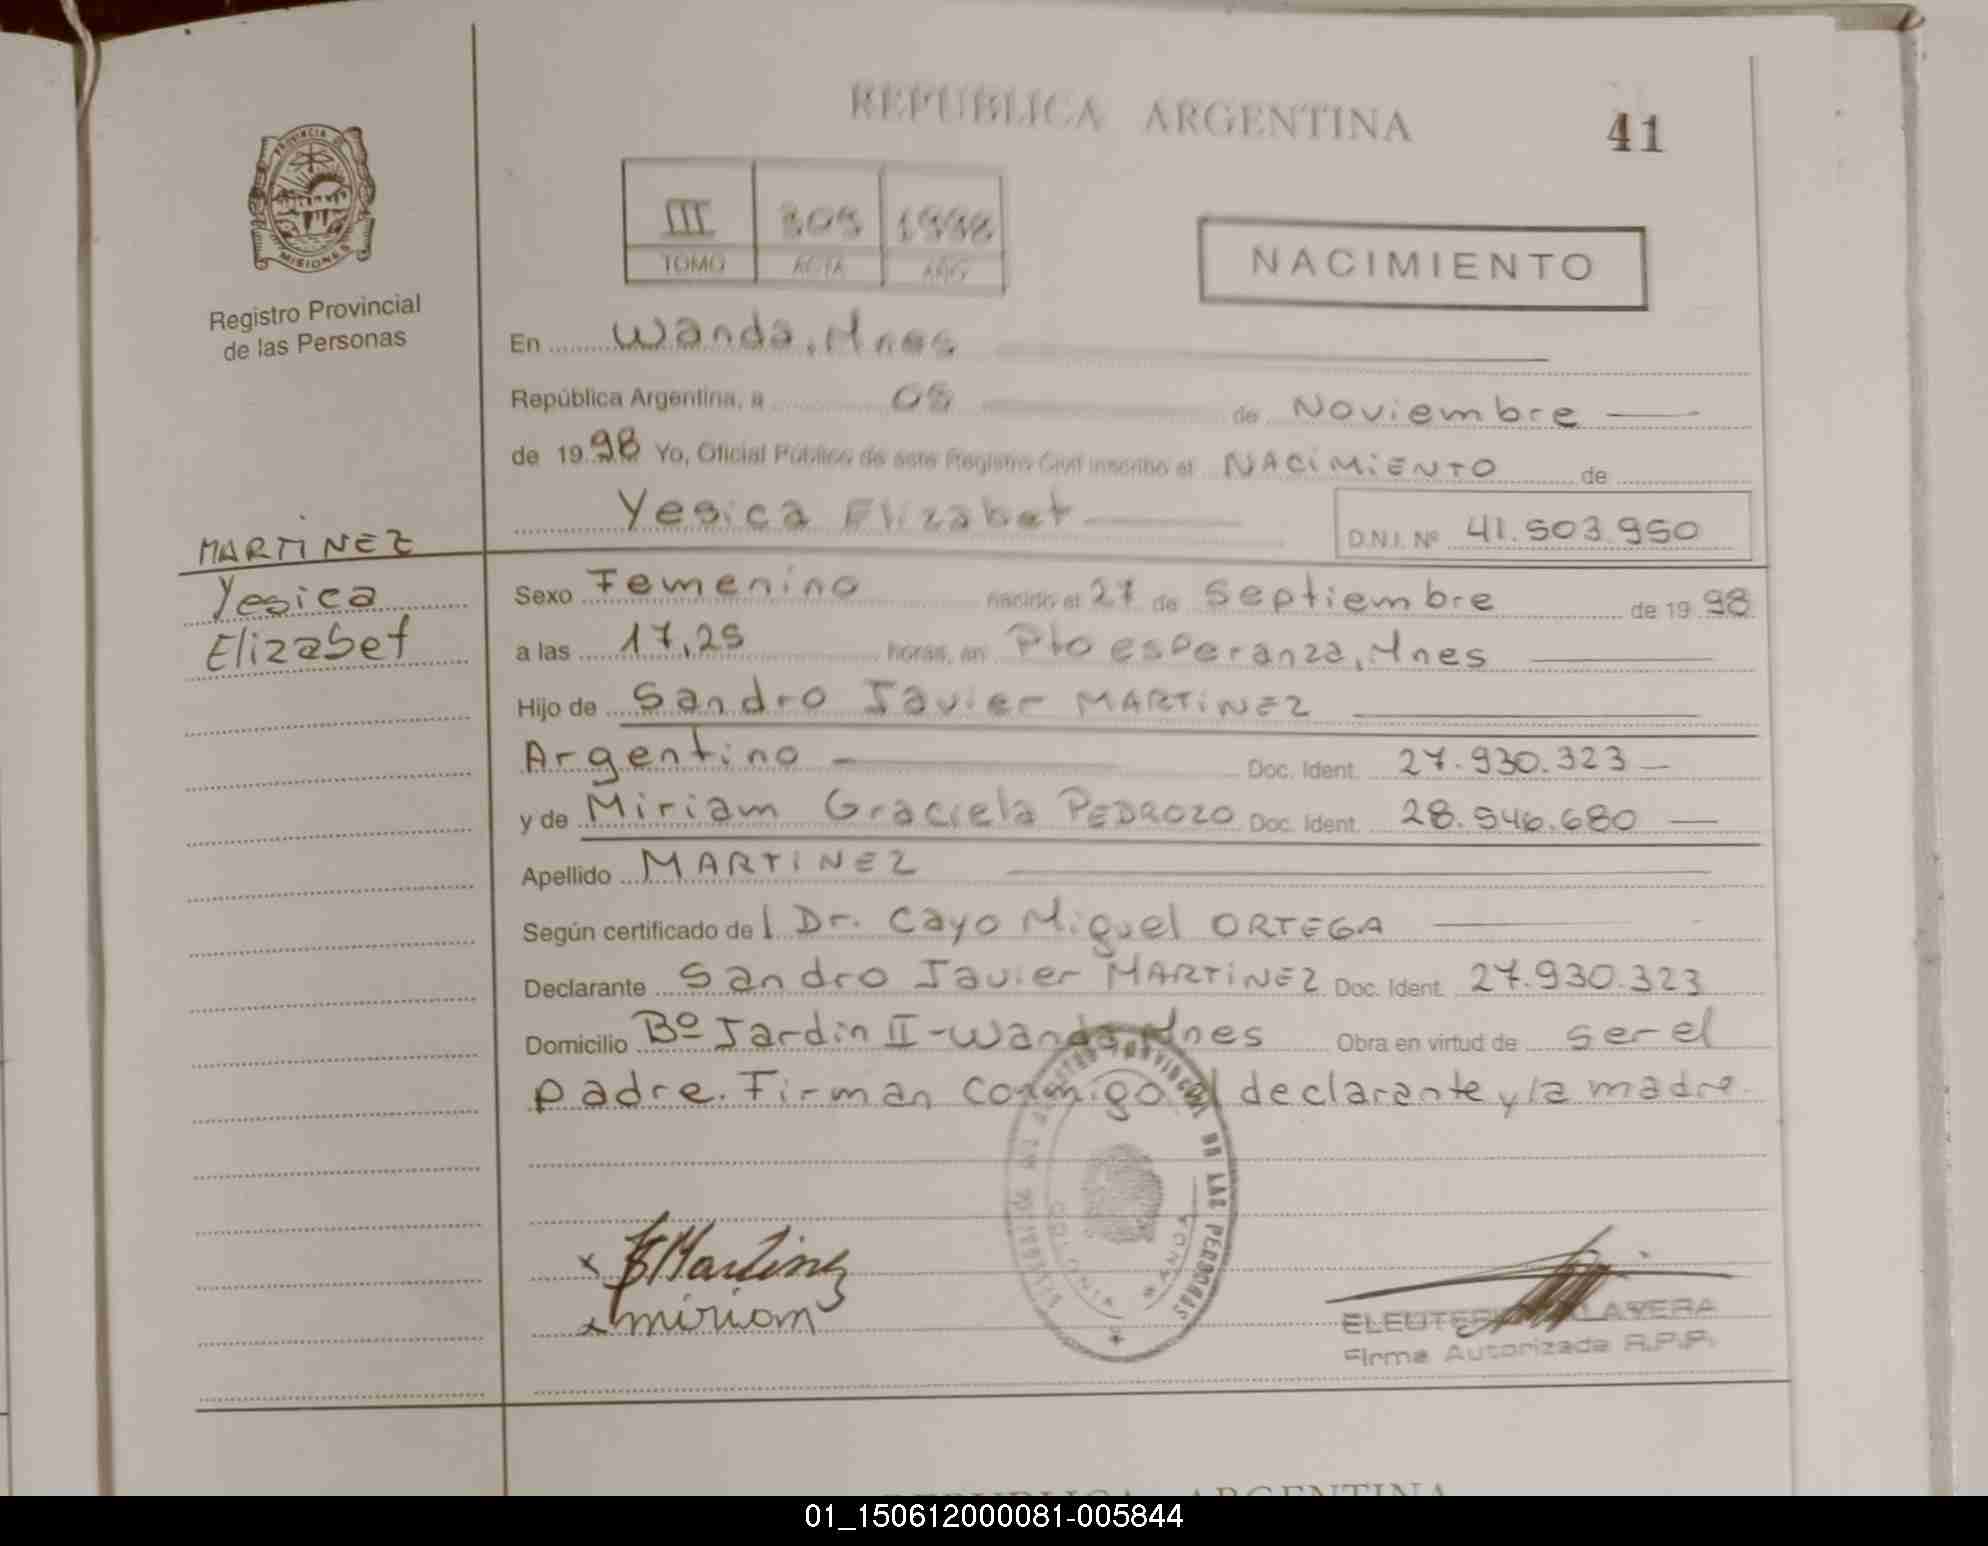 REPUBLICA ARGENTINA
41
PROVINCIA DE MISIONES
Registro Provincial
de las Personas
III 309 1998
TOMO ACTA AÑO
NACIMIENTO
En Wanda, Mnes
República Argentina, a 05 de Noviembre
de 1998 Yo, Oficial Público de este Registro Civil inscribo el NACIMIENTO de
Yesica Elizabet
D.N.I. Nº 41.503.950
MARTINEZ
Yesica
Elizabet
Sexo Femenino nacido el 27 de Septiembre de 1998
a las 17,25 horas, en Pto esperanza, Mnes
Hijo de Sandro Javier MARTINEZ
Argentino Doc. Ident. 27.930.323
y de Miriam Graciela PEDROZO Doc. Ident. 28.546.680
Apellido MARTINEZ
Según certificado del Dr. Cayo Miguel ORTEGA
Declarante Sandro Javier MARTINEZ Doc. Ident. 27.930.323
Domicilio Bº Jardin II - Wanda, Mnes Obra en virtud de ser el
padre. Firman conmigo el declarante y la madre.
PROVINCIAL DE LAS PERSONAS
COLONIA WANDA
x Martinez
x miriam
Firma Autorizada R.P.P.
REPUBLICA ARGENTINA
01_150612000081-005844